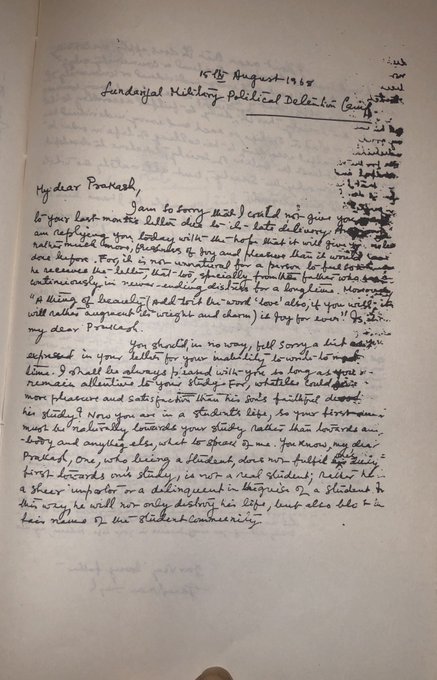 15th August 1968
Sundarijal Military Political Detention Camp
My dear Prakash,
I am so sorry that I could not give you
to your last month's letter due to its late delivery.
am replying you today with the hope that it will give
rather much more, freshness of joy and pleasure than it would
done before. For, it is not unnatural for a person to feel so
he receives the letter, that too, specially from the father who
continuously in never-ending distress for a long time. Moreover
"A thing of beauty (Add to it the word 'love' also, if you will; it
will rather augment its weight and charm) is joy for ever" Is it
my dear Prakash.
You should in no way, fell sorry a bit
expressed in your letter for your inability to write to me
time. I shall be always pleased with you so long as you
remain attentive to your study. For, what else could give
more pleasure and satisfaction than his son's faithful
his study? Now you are in a student's life, so your first
must be naturally towards your study rather than towards any
-body and anything else, what to speak of me. You know, my dear
Prakash, one, who being a student, does not fulfil his duty
first towards one's study, is not a real student; rather he
a sheer impostor or a delinquent in the guise of a student
this way, he will not only destroy his life, but also blot in
fair name of the student community.